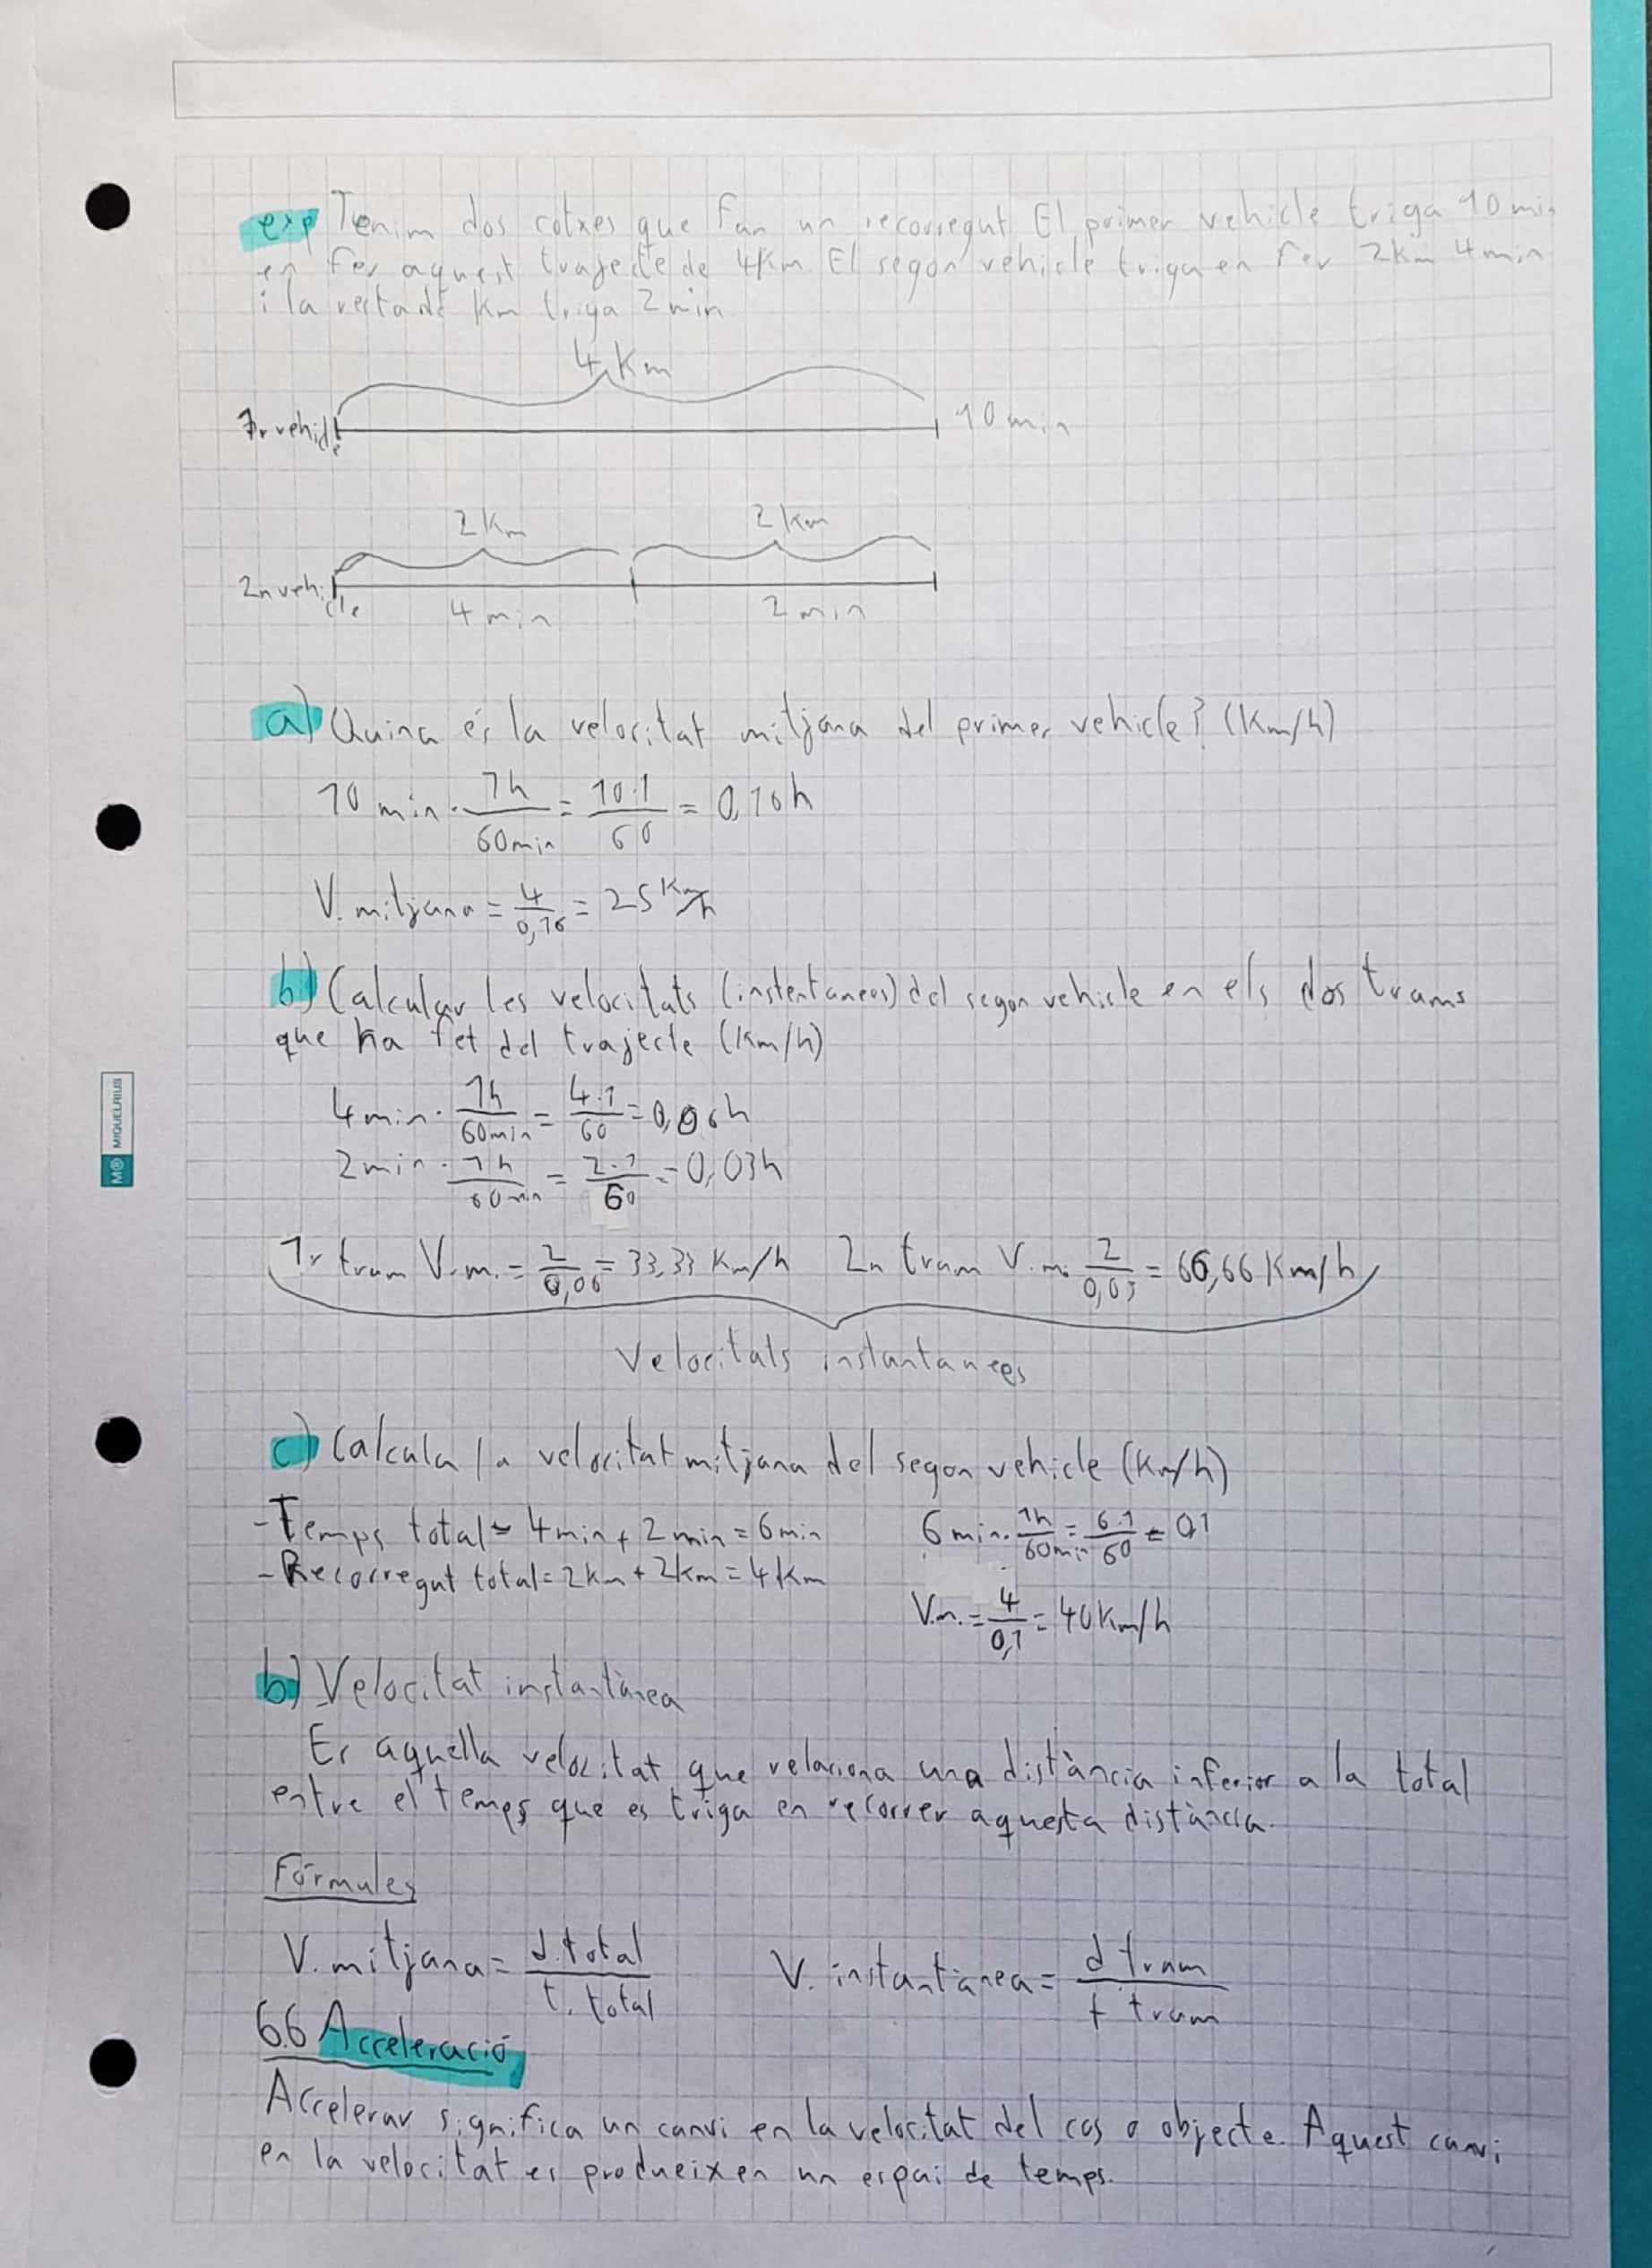 exp Tenim dos cotxes que fan un recorregut El primer vehicle triga 10 min
en fer aquest trajecte de 4Km. El segon vehicle triga en fer 2km 4min
i la resta de Km triga 2min
4 Km
1r vehicle 10 min
2 Km 2 km
2n vehicle
4 min 2 min
a) Quina és la velocitat mitjana del primer vehicle? (Km/h)
10 min · 1h/60min = 10·1/60 = 0,16h
V. mitjana = 4/0,16 = 25 Km/h
b) Calcular les velocitats (instentanees) del segon vehicle en els dos trams
que ha fet del trajecte (Km/h)
4 min · 1h/60min = 4·1/60 = 0,06h
2min · 1h/60min = 2·1/60 = 0,03h
1r tram V.m. = 2/0,06 = 33,33 Km/h 2n tram V.m. 2/0,03 = 66,66 Km/h
Velocitats instantanees
c) Calcula la velocitat mitjana del segon vehicle (Km/h)
- Temps total = 4min + 2min = 6min 6 min · 1h/60min = 6·1/60 = 0,1
- Recorregut total = 2km + 2km = 4km
V.m. = 4/0,1 = 40 Km/h
b) Velocitat instantànea
Es aquella velocitat que relaciona una distància inferior a la total
entre el temps que es triga en recorrer aquesta distància.
Fórmules
V. mitjana = d. total/t. total V. instantànea = d tram/t tram
6.6 Acceleració
Accelerar significa un canvi en la velocitat del cos o objecte. Aquest canvi
en la velocitat es produeix en un espai de temps.
M® MIQUELRIUS